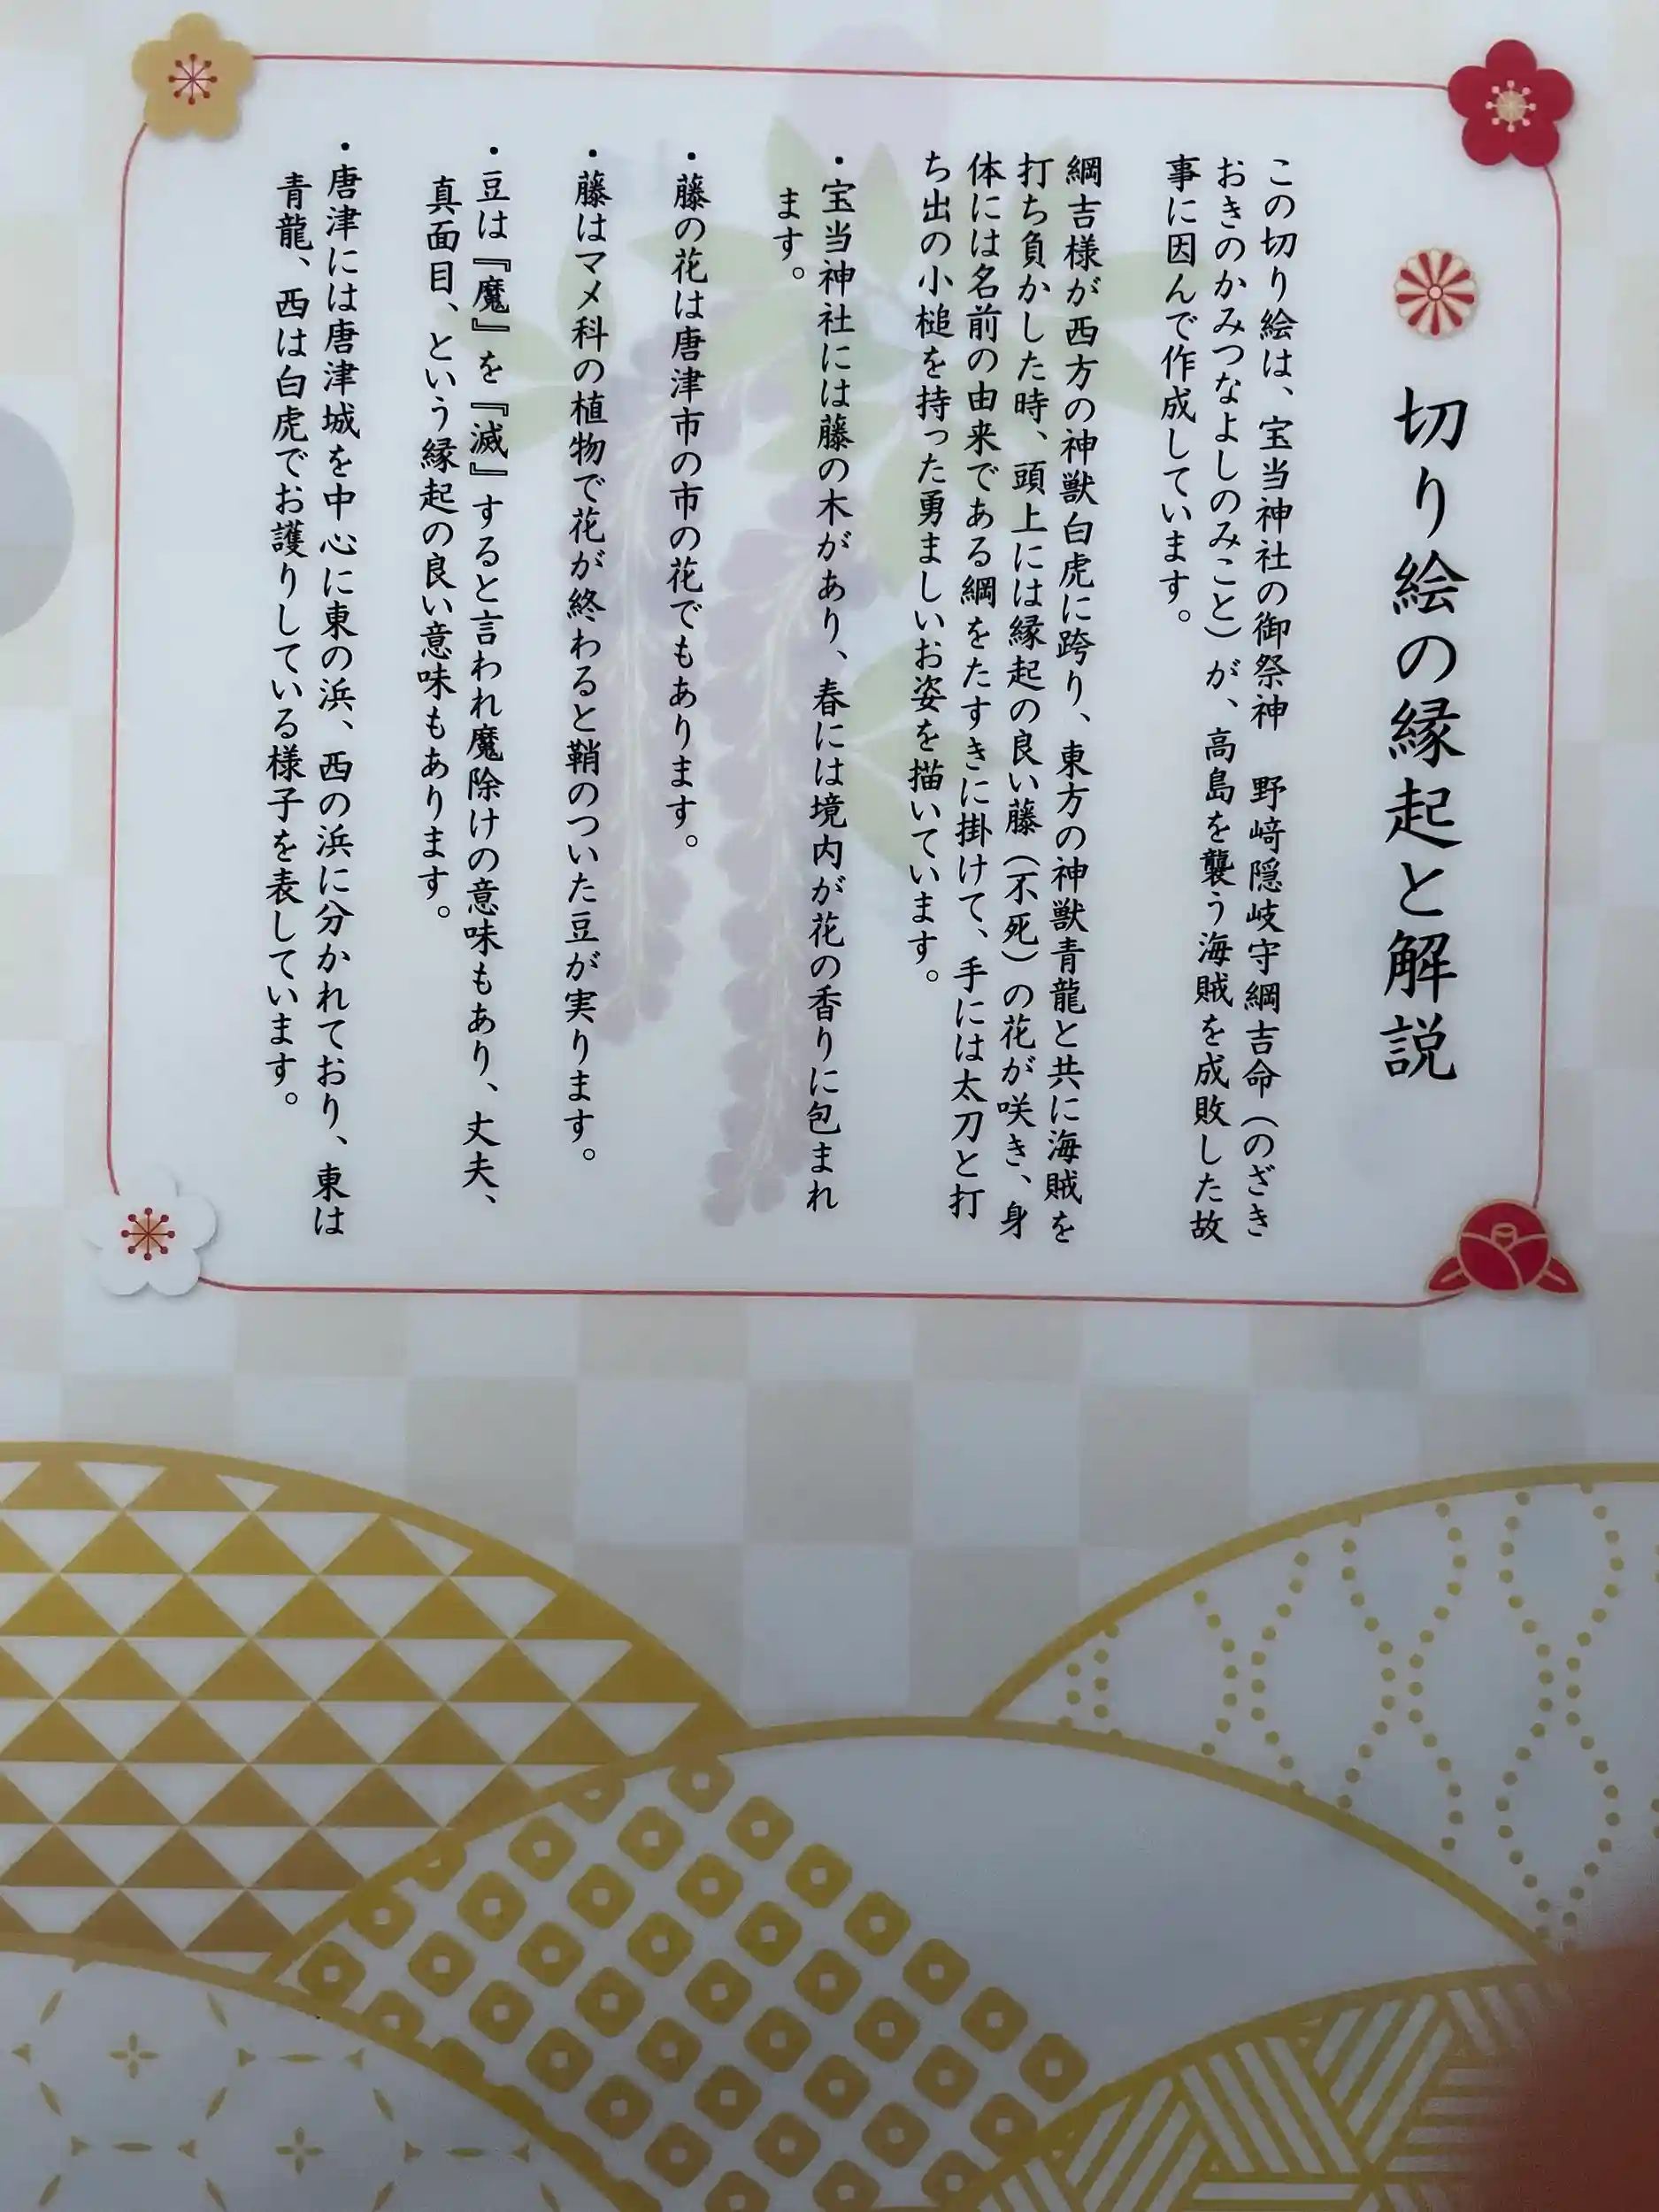 切り絵の縁起と解説
この切り絵は、宝当神社の御祭神　野﨑隠岐守綱吉命（のざき
おきのかみつなよしのみこと）が、高島を襲う海賊を成敗した故
事に因んで作成しています。
綱吉様が西方の神獣白虎に跨り、東方の神獣青龍と共に海賊を
打ち負かした時、頭上には縁起の良い藤（不死）の花が咲き、身
体には名前の由来である綱をたすきに掛けて、手には太刀と打
ち出の小槌を持った勇ましいお姿を描いています。
・宝当神社には藤の木があり、春には境内が花の香りに包まれ
ます。
・藤の花は唐津市の市の花でもあります。
・藤はマメ科の植物で花が終わると鞘のついた豆が実ります。
・豆は『魔』を『滅』すると言われ魔除けの意味もあり、丈夫、
真面目、という縁起の良い意味もあります。
・唐津には唐津城を中心に東の浜、西の浜に分かれており、東は
青龍、西は白虎でお護りしている様子を表しています。